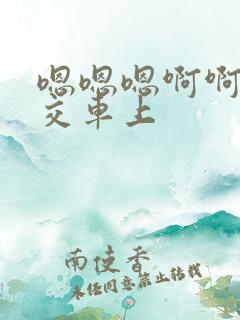 嗯嗯嗯啊啊
交车上
南使香
未经同意禁止转载